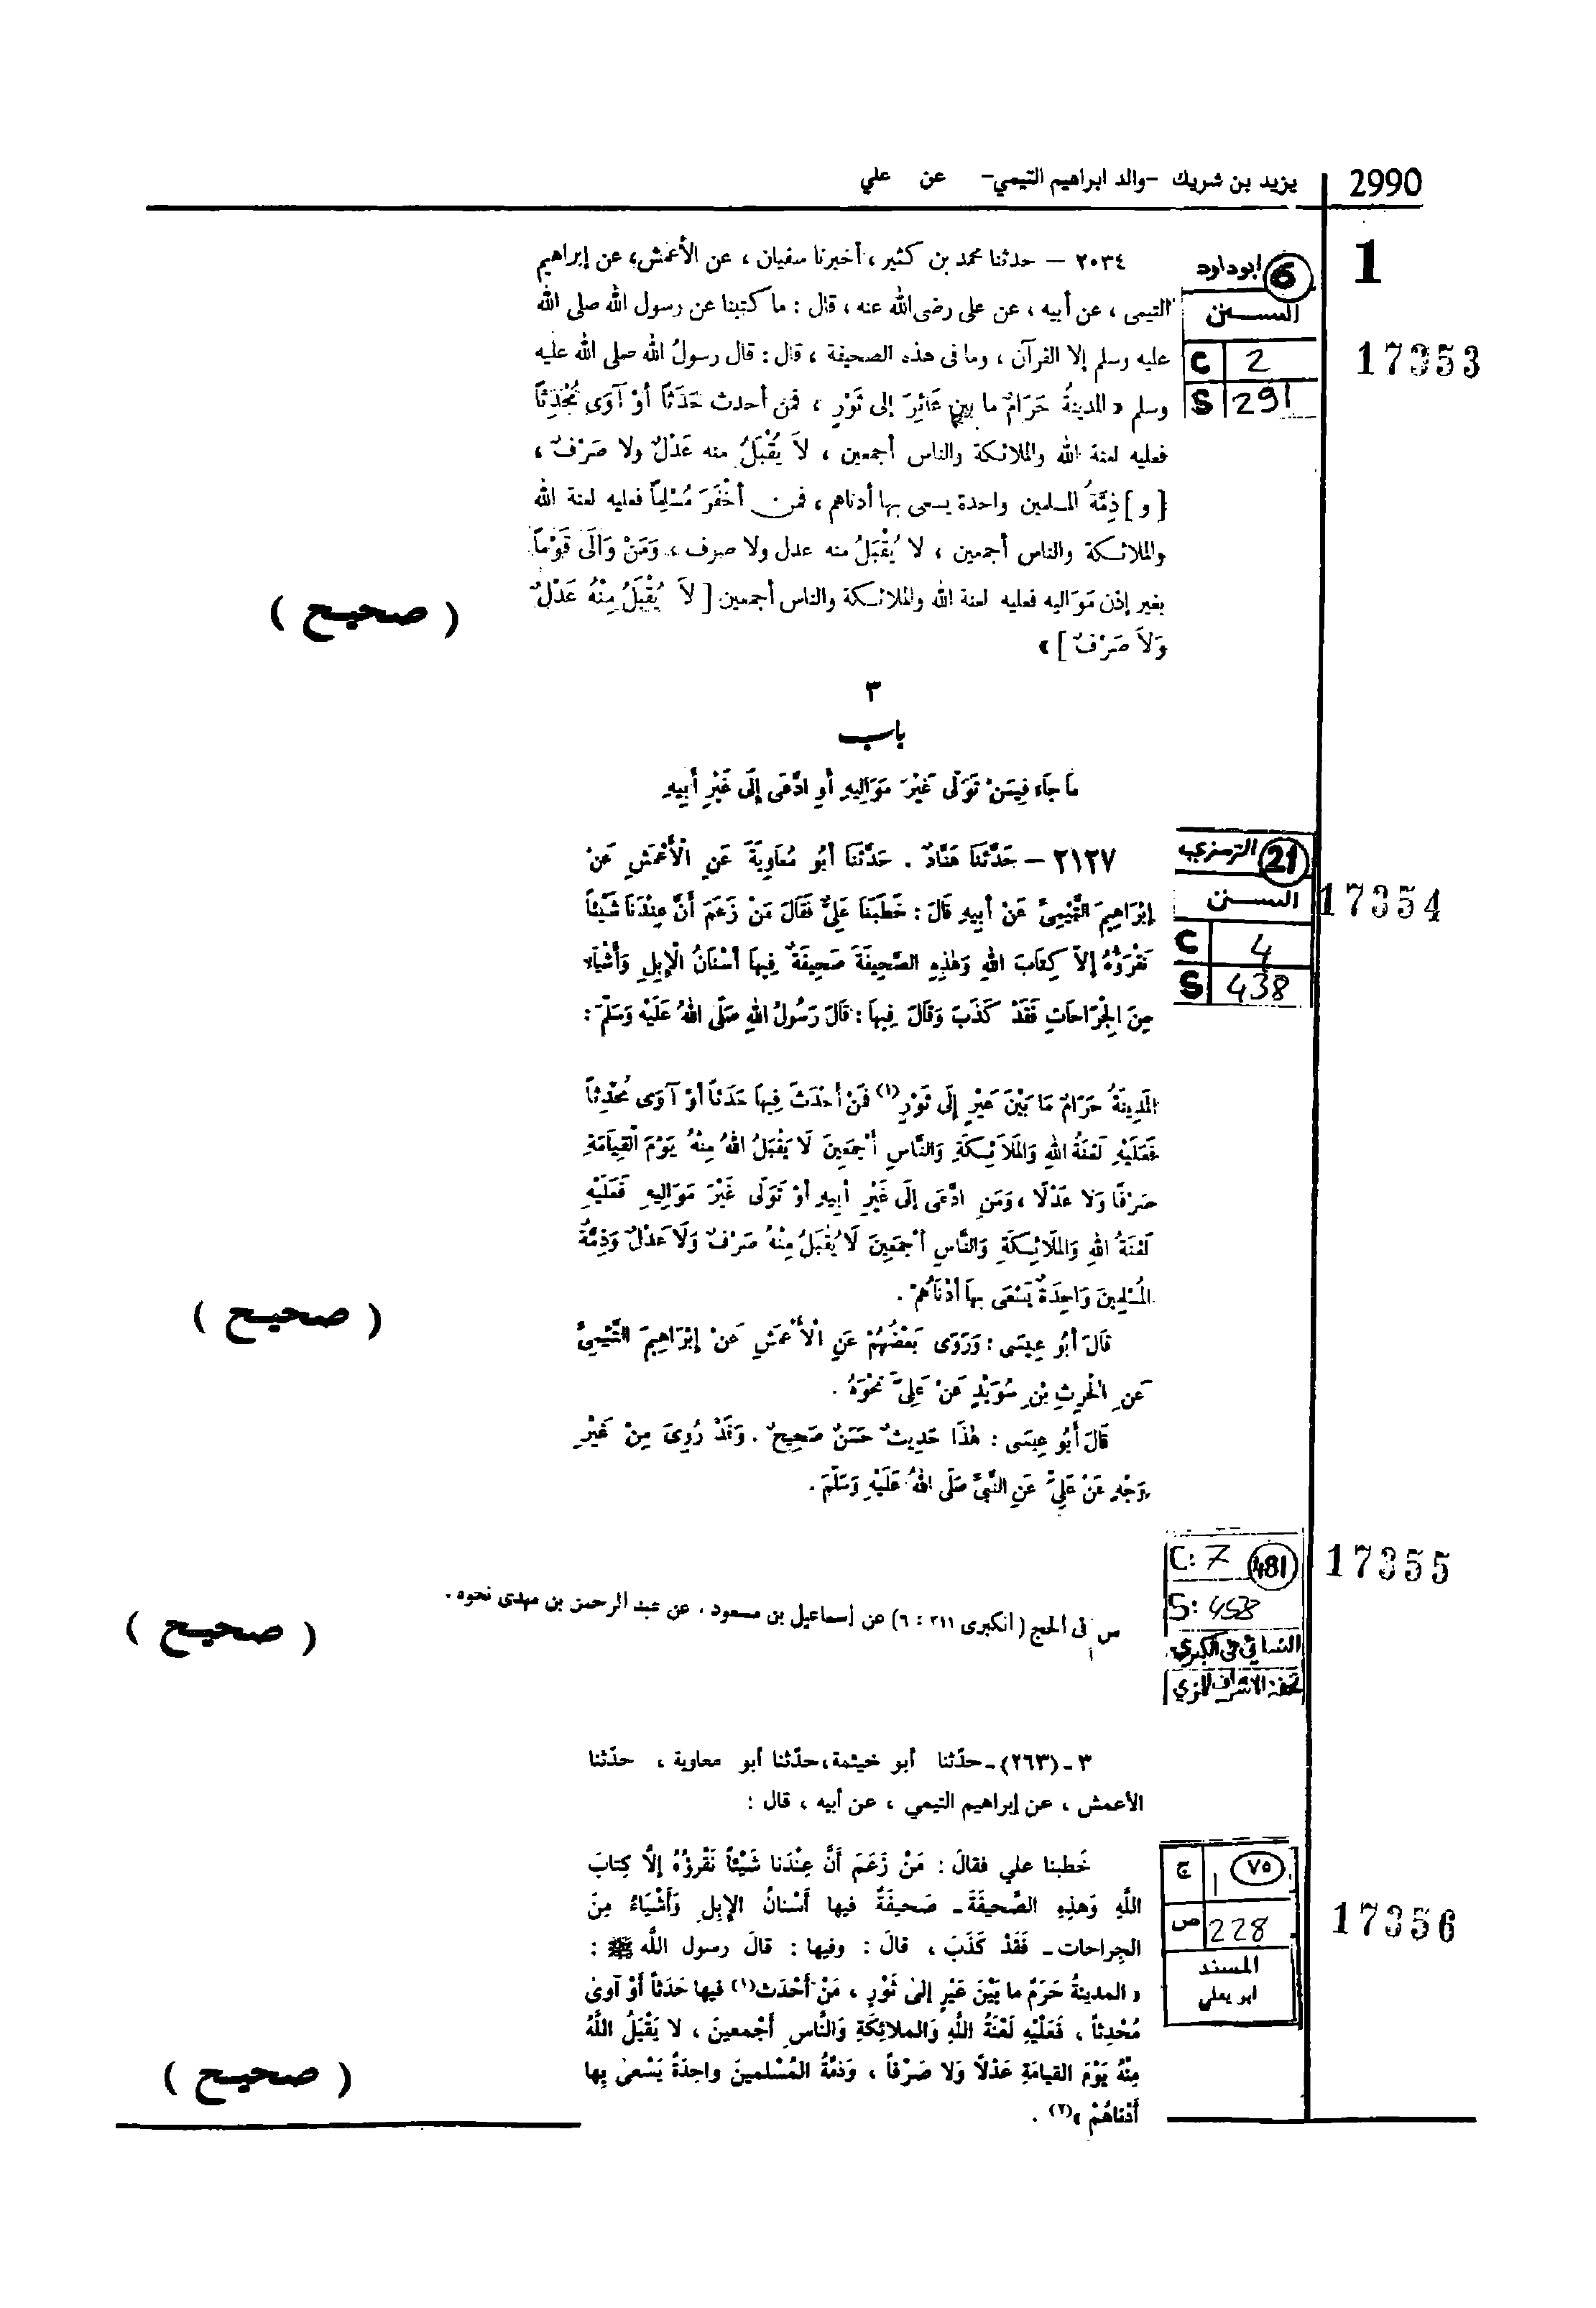 2990 يزيد بن شريك -والد ابراهيم التيمي- عن علي
1
6 ابوداود
السنن
C 2
S 291
17353
٢٠٣٤ — حدثنا محمد بن كثير ، أخبرنا سفيان ، عن الأعمش، عن إبراهيم
التيمى ، عن أبيه ، عن على رضى الله عنه ، قال : ما كتبنا عن رسول الله صلى الله
عليه وسلم إلا القرآن ، وما فى هذه الصحيفة ، قال : قال رسولُ الله صلى الله عليه
وسلم « المدينةُ حَرَامٌ ما بين عَائِرَ إلى ثَوْرٍ ، فمن أحدث حَدَثاً أوْ آوَى مُحْدِثاً
فعليه لعنة الله والملائكة والناس أجمعين ، لاَ يُقْبَلُ منه عَدْلٌ ولا صَرْفٌ ،
[ و ] ذِمَّةُ المسلمين واحدة يسعى بها أدناهم ، فمن أخْفَرَ مُسْلِماً فعليه لعنة الله
والملائكة والناس أجمعين ، لا يُقْبَلُ منه عدل ولا صرف ، وَمَنْ وَالَى قَوْماً
بغير إذن مَوَاليه فعليه لعنة الله والملائكة والناس أجمعين [ لاَ يُقْبَلُ مِنْهُ عَدْلٌ
وَلاَ صَرْفٌ ] »
( صحيح )
٣
باب
مَا جَاءَ فِيمَنْ تَوَلَّى غَيْرَ مَوَالِيهِ أَوِ ادَّعَى إِلَى غَيْرِ أَبِيهِ
21 الترمزي
السنن
C 4
S 438
17354
٢١٢٧ — حَدَّثَنَا هَنَّادٌ . حَدَّثَنَا أَبُو مُعَاوِيَةَ عَنِ الْأَعْمَشِ عَنْ
إِبْرَاهِيمَ التَّيْمِيِّ عَنْ أَبِيهِ قَالَ : خَطَبَنَا عَلِيٌّ فَقَالَ مَنْ زَعَمَ أَنَّ عِنْدَنَا شَيْئاً
نَقْرَؤُهُ إِلاَّ كِتَابَ اللهِ وَهٰذِهِ الصَّحِيفَةَ صَحِيفَةٌ فِيهَا أَسْنَانُ الْإِبِلِ وَأَشْيَاءُ
مِنَ الْجِرَاحَاتِ فَقَدْ كَذَبَ وَقَالَ فِيهَا : قَالَ رَسُولُ اللهِ صَلَّى اللهُ عَلَيْهِ وَسَلَّمَ :
الْمَدِينَةُ حَرَامٌ مَا بَيْنَ عَيْرٍ إِلَى ثَوْرٍ (١) فَمَنْ أَحْدَثَ فِيهَا حَدَثاً أَوْ آوَى مُحْدِثاً
فَعَلَيْهِ لَعْنَةُ اللهِ وَالْمَلَائِكَةِ وَالنَّاسِ أَجْمَعِينَ لَا يَقْبَلُ اللهُ مِنْهُ يَوْمَ الْقِيَامَةِ
صَرْفًا وَلَا عَدْلًا ، وَمَنِ ادَّعَى إِلَى غَيْرِ أَبِيهِ أَوْ تَوَلَّى غَيْرَ مَوَالِيهِ فَعَلَيْهِ
لَعْنَةُ اللهِ وَالْمَلَائِكَةِ وَالنَّاسِ أَجْمَعِينَ لَا يُقْبَلُ مِنْهُ صَرْفٌ وَلَا عَدْلٌ وَذِمَّةُ
الْمُسْلِمِينَ وَاحِدَةٌ يَسْعَى بِهَا أَدْنَاهُمْ .
( صحيح )
قَالَ أَبُو عِيسَى : وَرَوَى بَعْضُهُمْ عَنِ الْأَعْمَشِ عَنْ إِبْرَاهِيمَ التَّيْمِيِّ
عَنِ الْحٰرِثِ بْنِ سُوَيْدٍ عَنْ عَلِيٍّ نَحْوَهُ .
قَالَ أَبُو عِيسَى : هٰذَا حَدِيثٌ حَسَنٌ صَحِيحٌ . وَقَدْ رُوِيَ مِنْ غَيْرِ
وَجْهٍ عَنْ عَلِيٍّ عَنِ النَّبِيِّ صَلَّى اللهُ عَلَيْهِ وَسَلَّمَ .
C: 7 481
S: 458
النسائي في الكبرى
تحفة الاشراف للمزي
17355
س فى الحج ( الكبرى ٣١١ : ٦) عن إسماعيل بن مسعود ، عن عبد الرحمن بن مهدى نحوه .
( صحيح )
٣ ـ (٢٦٣) ـ حدّثنا أبو خيثمة، حدّثنا أبو معاوية ، حدّثنا
الأعمش ، عن إبراهيم التيمي ، عن أبيه ، قال :
٧٥ ج 1
ص 228
المسند
ابو يعلي
17356
خَطبنا علي فقالَ : مَنْ زَعَمَ أَنَّ عِنْدَنا شَيْئاً نَقْرؤُهُ إلَّا كِتابَ
اللَّهِ وَهٰذِهِ الصَّحيفَةَ ـ صَحيفَةٌ فيها أسْنانُ الإبِلِ وَأَشْيَاءُ مِنَ
الجِراحات ـ فَقَدْ كَذَبَ ، قالَ : وفيها : قالَ رسول اللَّه ﷺ :
« المدينةُ حَرَمٌ ما بَيْنَ عَيْرٍ إلىٰ ثَوْرٍ ، مَنْ أَحْدَثَ(١) فيها حَدَثاً أَوْ آوىٰ
مُحْدِثاً ، فَعَلَيْهِ لَعْنَةُ اللَّهِ وَالملائِكَةِ وَالنَّاسِ أَجْمعينَ ، لا يَقْبَلُ اللَّهُ
مِنْهُ يَوْمَ القيامَةِ عَدْلاً وَلا صَرْفاً ، وَذمَّةُ المُسْلمينَ واحِدَةٌ يَسْعىٰ بِها
أَدْناهُمْ »(٢) .
( صحيح )